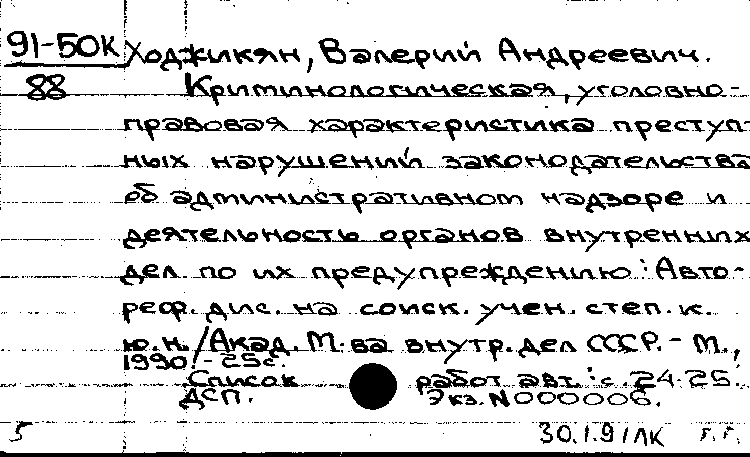 91-50к Ходжикян, Валерий Андреевич.
88 Криминологическая, уголовно-
правовая характеристика преступ-
ных нарушений законодательства
об административном надзоре и
деятельность органов внутренних
дел по их предупреждению: Авто-
реф. дис. на соиск. учен. степ. к.
ю.н. / Акад. М-ва внутр. дел СССР. - М.,
1990. - 25с.
Список работ авт.: с. 24-25.
ДСП. Экз. N000006.
5 30.1.91 ЛК г.г.